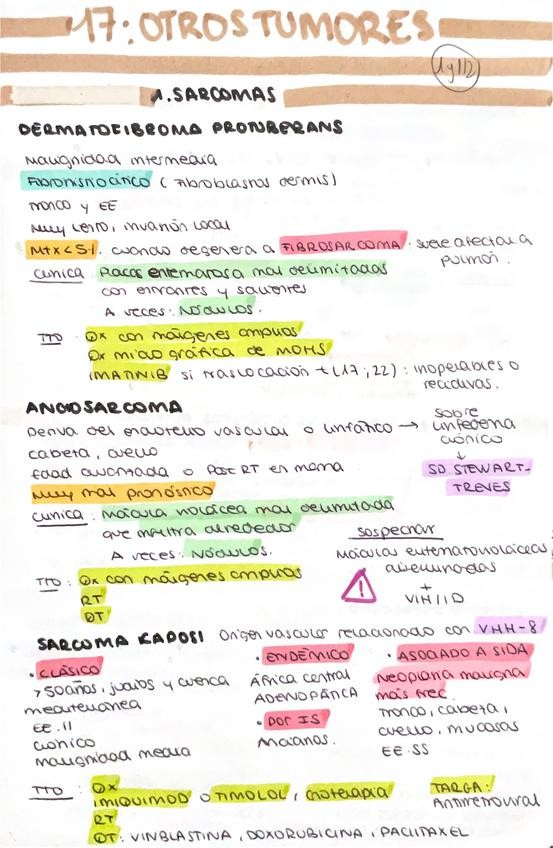 17: OTROS TUMORES
1 y 1/2
1. SARCOMAS
DERMATOFIBROMA PROTUBERANS
Malignidad intermedia
Fibrohistiocítico (Fibroblastos dermis)
Tronco y EE
Muy lento, invasión local
Mtx < 5%. cuando degenera a FIBROSARCOMA. suele afectar a
pulmón.
Clínica. Placas eritematosa mal delimitadas
con entrantes y salientes
A veces: NÓDULOS.
TTO: Qx con márgenes amplios
Qx micrográfica de MOHS
IMATINIB si traslocación t(17;22): inoperables o
recidivas.
ANGIOSARCOMA
Deriva del endotelio vascular o linfático → sobre
linfedema
crónico
↓
SD STEWART-
TREVES
cabeza, cuello
Edad avanzada o Post RT en mama
Muy mal pronóstico
Clínica. Mácula violácea mal delimitada
que infiltra alrededor
A veces: NÓDULOS.
TTO: Qx con márgenes amplios
RT
QT
Sospechar
Máculas eritematovioláceas
diseminadas
+
VIH/ID
SARCOMA KAPOSI Origen vascular relacionado con VHH-8
· CLÁSICO
> 50 años, judíos y cuenca
mediterránea
EE.II
crónico
malignidad media
· ENDÉMICO
África central
ADENOPÁTICA
· POR IS
Ancianos.
· ASOCIADO A SIDA
Neoplasia maligna
más frec.
Tronco, cabeza,
cuello, mucosas
EE.SS
TTO: Qx
IMIQUIMOD o TIMOLOL, crioterapia
RT
QT: VINBLASTINA, DOXORUBICINA, PACLITAXEL
TARGA:
Antirretroviral